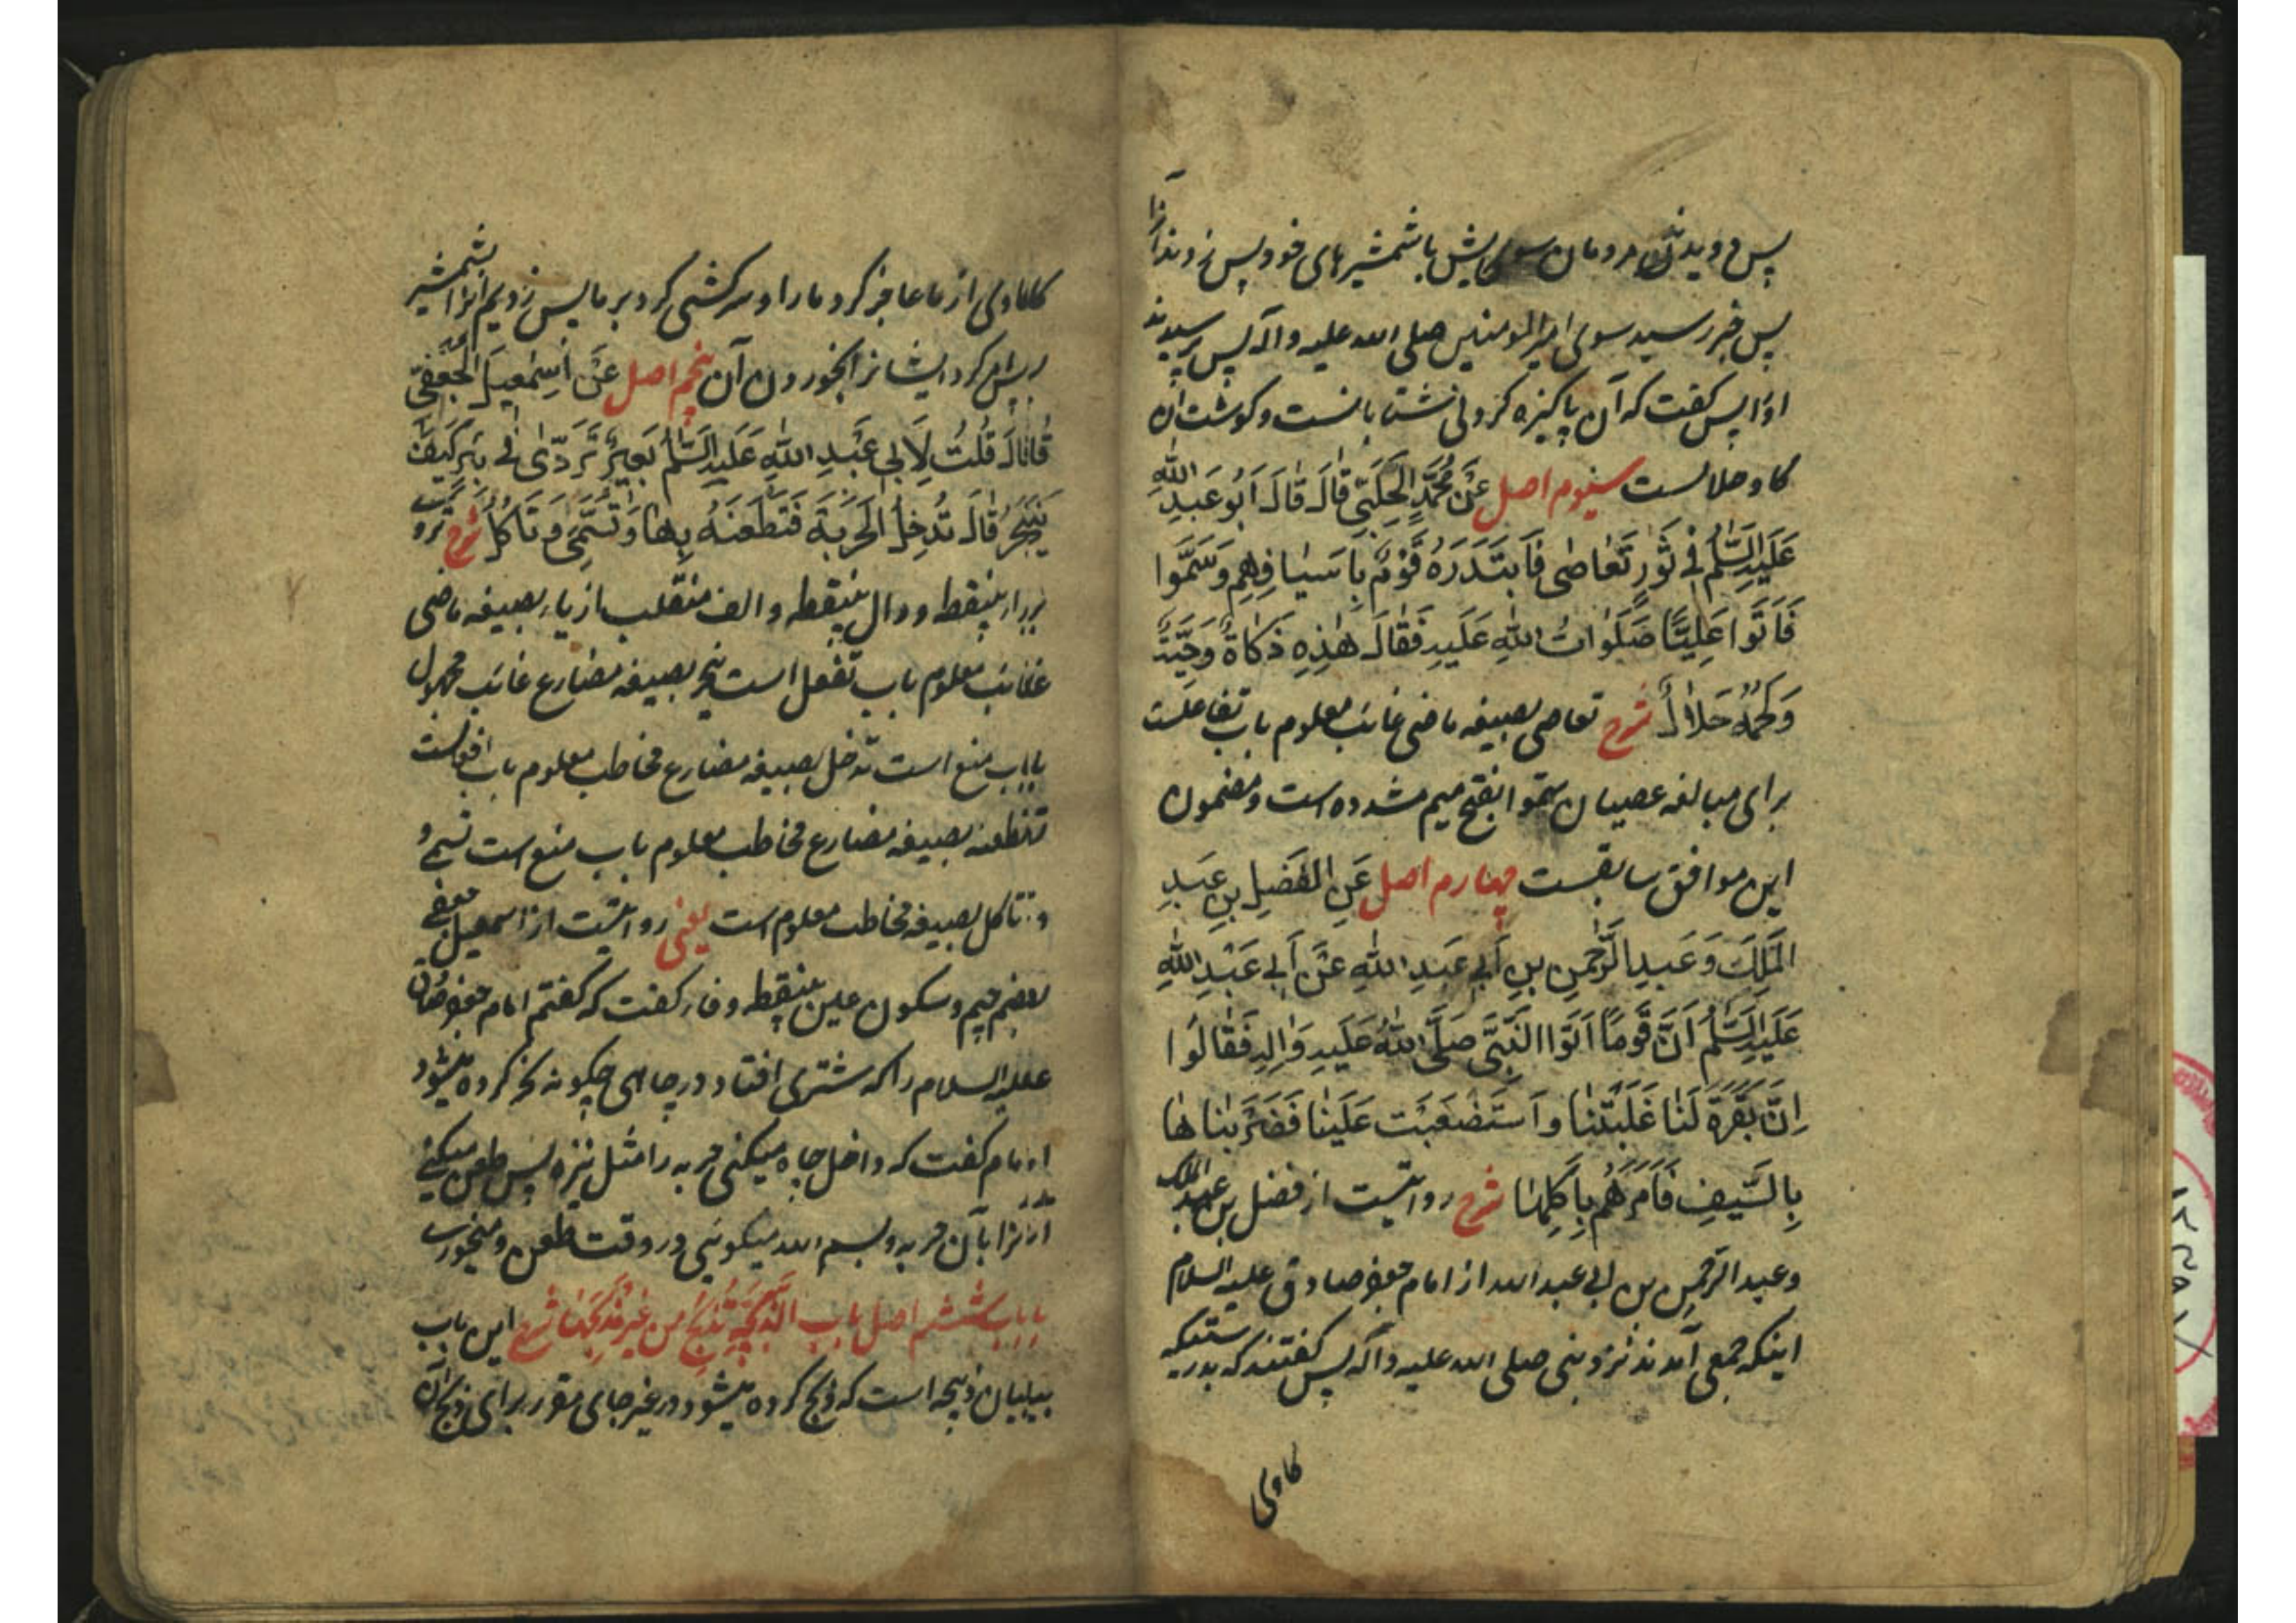 پس دویدند مردمان سوی پیش با شمشیرهای خود پس زدند آنرا
پس خبر رسید سوی امیرالمومنین صلی الله علیه وآله پس پرسیدند
اورا پس کفت که آن پاکیزه کردنی شتابانست و کوشت آن
کاو حلالست سیوم اصل عَنْ مُحَمَّدٍ الْحَلَبِیِّ قَالَ قَالَ اَبُو عَبْدِ اللّٰهِ
عَلَیْهِ السَّلٰمُ فِی ثَوْرٍ تَعَاصٰی فَابْتَدَرَهُ قَوْمٌ بِاَسْیَافِهِمْ وَسَمَّوْا
فَاَتَوْا عَلِیًّا صَلَوٰاتُ اللّٰهِ عَلَیْهِ فَقَالَ هٰذِهِ ذَکَاةٌ وَحِیَّةٌ
وَلَحْمُهُ حَلَالٌ شرح تعاصی بصیغه ماضی غائب معلوم باب تفاعلست
برای مبالغه عصیان سمّوا بفتح میم مشدده است و مضمون
این موافق سابقست چهارم اصل عَنِ الْفَضْلِ بْنِ عَبْدِ
الْمَلِکِ وَعَبْدِ الرَّحْمٰنِ بْنِ اَبِی عَبْدِ اللّٰهِ عَنْ اَبِی عَبْدِ اللّٰهِ
عَلَیْهِ السَّلٰمُ اَنَّ قَوْمًا اَتَوُا النَّبِیَّ صَلَّی اللّٰهُ عَلَیْهِ وَاٰلِهِ فَقَالُوا
اِنَّ بَقَرَةً لَنَا غَلَبَتْنَا وَاسْتَصْعَبَتْ عَلَیْنَا فَضَرَبْنَاهَا
بِالسَّیْفِ فَاَمَرَهُمْ بِاَکْلِهَا شرح روایتست از فضل بن عبدالملک
وعبدالرحمن بن ابی عبدالله از امام جعفر صادق علیه السلام
اینکه جمعی آمدند نزد نبی صلی الله علیه وآله پس کفتند که بدرستیکه
کاوی
کاوی از ما عاجز کرد مارا و سرکشی کرد بر ما پس زدیم آنرا بشمشیر
پس امر کرد ایشانرا بخوردن آن پنجم اصل عَنْ اِسْمٰعِیلَ الْجُعْفِیِّ
قَالَ قُلْتُ لِاَبِی عَبْدِ اللّٰهِ عَلَیْهِ السَّلٰمُ بَعِیرٌ تَرَدّٰی فِی بِئْرٍ کَیْفَ
یُنْحَرُ قَالَ تُدْخِلُ الْحَرْبَةَ فَتَطْعَنُهُ بِهَا وَتُسَمِّی وَتَاْکُلُ شرح تردی
براء بینقطه و دال بینقطه و الف منقلب از یاء بصیغه ماضی
غائب معلوم باب تفعل است ینحر بصیغه مضارع غائب مجهول
باب منع است تدخل بصیغه مضارع مخاطب معلوم باب افعالست
تطعنه بصیغه مضارع مخاطب معلوم باب منع است تسمی و
تاکل بصیغه مخاطب معلوم است یعنی روایتست از اسمعیل جعفی
بضم جیم و سکون عین بینقطه و فاء کفت که کفتم امام جعفر صادق
علیه السلام را که شتری افتاد در چاهی چکونه نحر کرده میشود
امام کفت که داخل چاه میکنی حربه را مثل نیزه پس طعن میکنی
آنرا بآن حربه و بسم الله میکوئی در وقت طعن و میخوری
باب ششم اصل باب الذَّبِیحَةِ تُذْبَحُ مِنْ غَیْرِ مَذْبَحِهَا شرح این باب
بیان ذبیحه است که ذبح کرده میشود در غیر جای مقرر برای ذبح آن